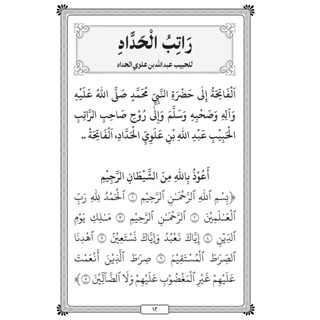 رَاتِبُ الْحَدَّادِ
للحبيب عبدالله بن علوي الحداد
اَلْفَاتِحَةُ إِلَى حَضْرَةِ النَّبِيِّ مُحَمَّدٍ صَلَّى اللهُ عَلَيْهِ
وَآلِهِ وَصَحْبِهِ وَسَلَّمَ وَإِلَى رُوْحِ صَاحِبِ الرَّاتِبِ
الْحَبِيْبِ عَبْدِ اللهِ بْنِ عَلَوِيِّ الْحَدَّادِ، اَلْفَاتِحَةُ ..
أَعُوْذُ بِاللهِ مِنَ الشَّيْطَانِ الرَّجِيْمِ
﴿بِسْمِ ٱللَّهِ ٱلرَّحْمَٰنِ ٱلرَّحِيمِ ١ ٱلْحَمْدُ لِلَّهِ رَبِّ
ٱلْعَٰلَمِينَ ٢ ٱلرَّحْمَٰنِ ٱلرَّحِيمِ ٣ مَٰلِكِ يَوْمِ
ٱلدِّينِ ٤ إِيَّاكَ نَعْبُدُ وَإِيَّاكَ نَسْتَعِينُ ٥ ٱهْدِنَا
ٱلصِّرَٰطَ ٱلْمُسْتَقِيمَ ٦ صِرَٰطَ ٱلَّذِينَ أَنْعَمْتَ
عَلَيْهِمْ غَيْرِ ٱلْمَغْضُوبِ عَلَيْهِمْ وَلَا ٱلضَّآلِّينَ ٧﴾
١٢